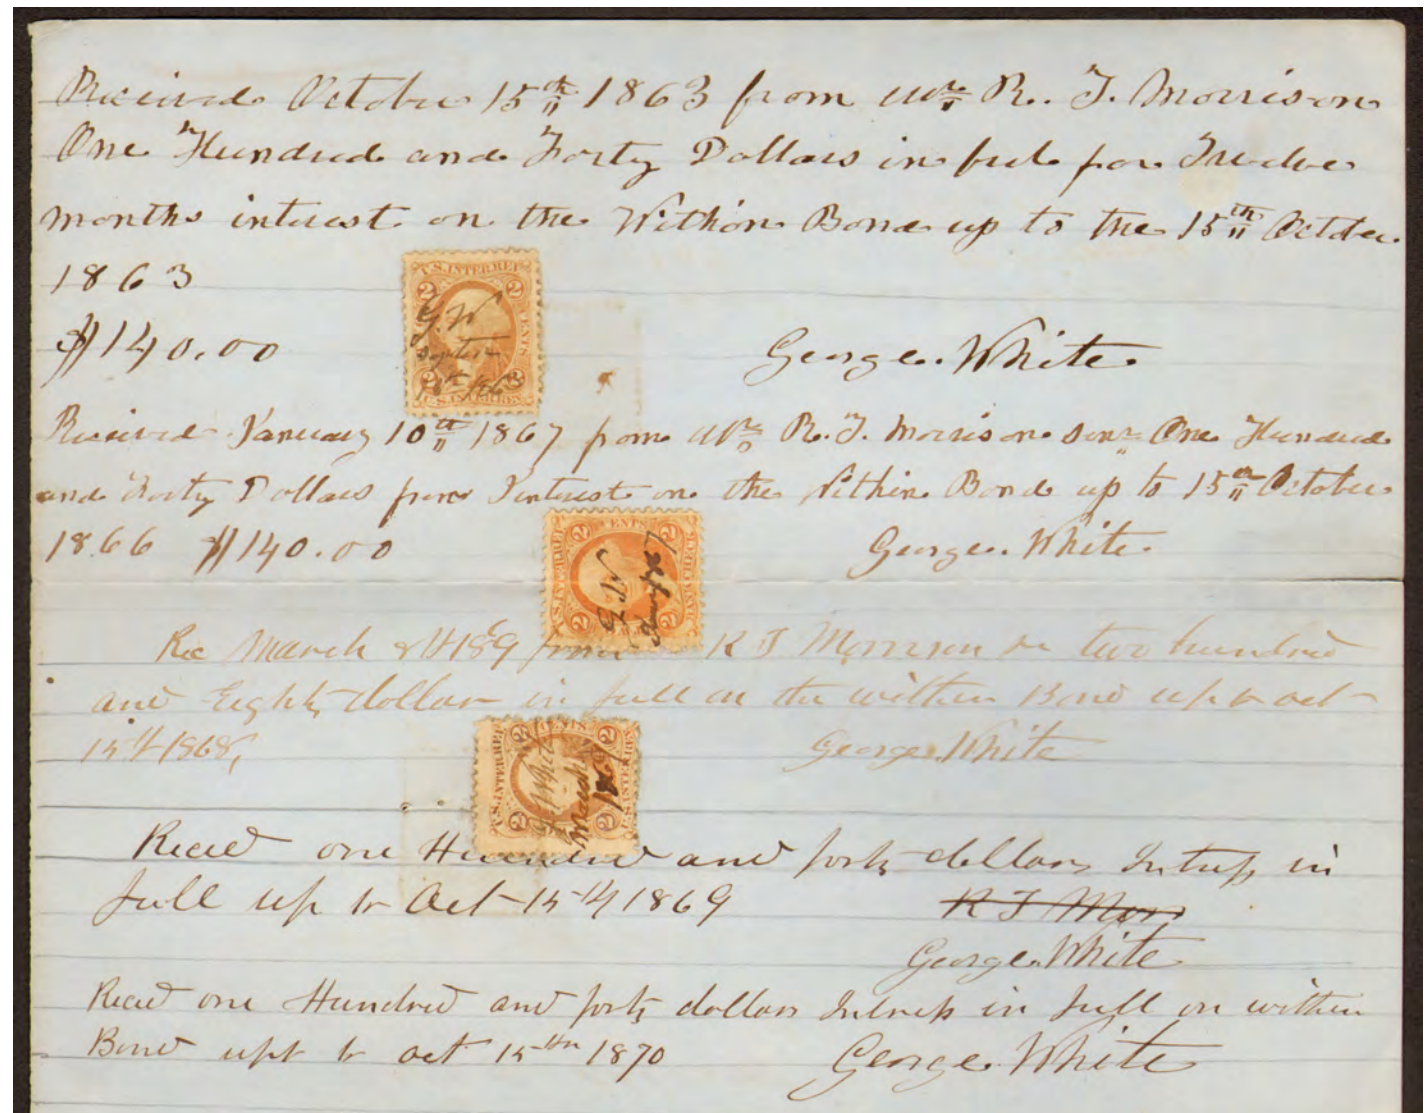 Received October 15th 1863 from Mr R. T. Morrison
One Hundred and Forty Dollars in full for Twelve
months interest on the Within Bond up to the 15th October
1863
U.S. INTER. REV.
2 2
CENTS
G. W
18th 1863
2 2
U.S. INTER. REV.
$140.00
George. White
Received January 10th 1867 from Mr R. T. Morrison senr One Hundred
and Forty Dollars from Interest on the Within Bond up to 15th October
1866 $140.00
George. White.
U.S. INTER. REV.
CENTS
2 2
G. W
2 2
Rec March 1869 from R T Morrison two hundred
and Eighty dollars in full on the within Bond up to oct
15th 1868,
George. White
U.S. INTER. REV.
CENTS
2 2
G White
March
1869
2 2
U.S. INTER. REV.
Recd one Hundred and forty dollars Intress in
full up to Oct 15th 1869
R T Morr
George. White
Recd one Hundred and forty dollars Intress in full on within
Bond upt to oct 15th 1870
George. White